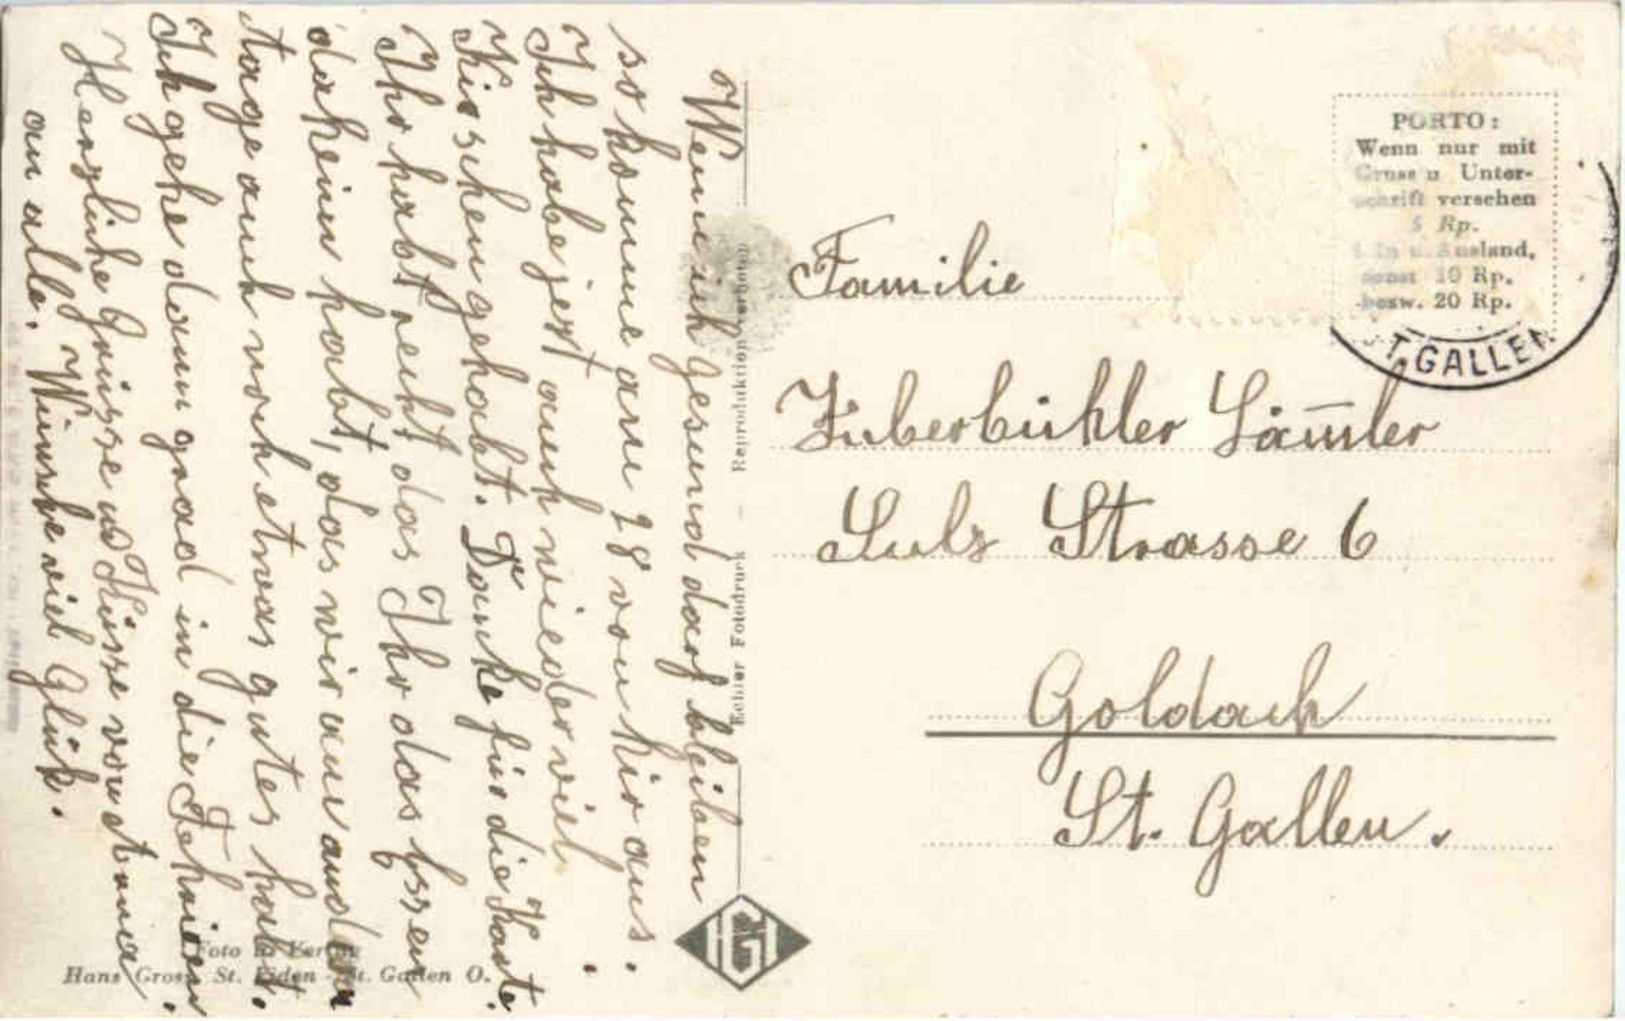 Wenn ich gesund darf bleiben
so komme am 28 von hir aus.
Ich habe jezt auch wieder viel
Kisschen gehabt. Danke für die Karte.
Ihr habt recht das Ihr das Essen
daheim habt, das wir am andern
tage auch noch etwas gutes habt.
Ich gehe dann grad in die Ferien.
Herzliche Grüsse u Küsse von
an alle. Wünsche viel Glück.
Familie
Zuberbühler Sämler
Sulz Strasse 6
Goldach
St. Gallen.
PORTO:
Wenn nur mit
Gruss u Unter-
schrift versehen
5 Rp.
Ausland,
sonst 10 Rp.
bezw. 20 Rp.
T. GALLEN
Reproduktion verboten
Fotodruck
Foto
Hans Gross, St. Fiden - St. Gallen O.
HG